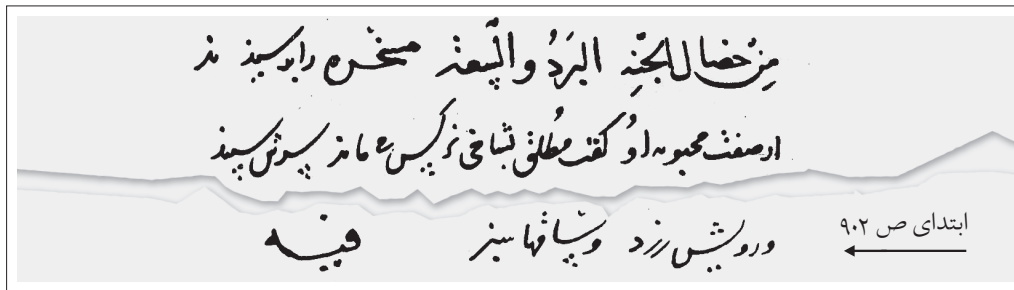 مِنْ خصال الجَنّهِ البَردُ والسَّعة مسخره را برسیذ ند
از صفت محبوبه اوُ کفت مُطلق بشاخی نرکس ماند سرش سپیذ
ورویش زرد وساقها سبز فیه
ابتدای ص ۹۰۲